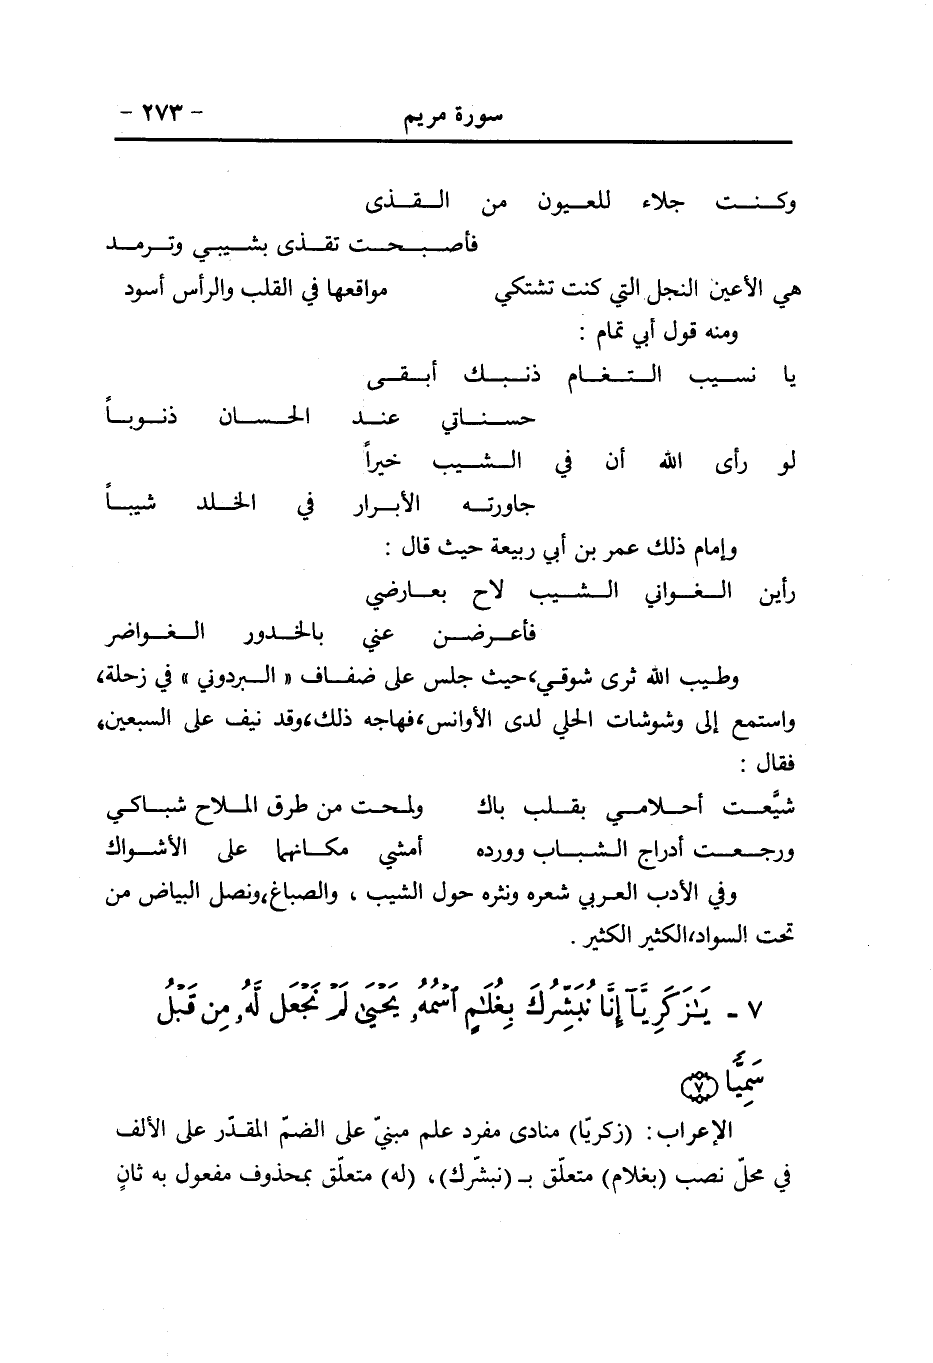 سورة مريم - ٢٧٣ -
وكنت جلاء للعيون من القذى
فأصبحت تقذى بشيبي وترمد
هي الأعين النجل التي كنت تشتكي مواقعها في القلب والرأس أسود
ومنه قول أبي تمام :
يا نسيب التغام ذنبك أبقى
حسناتي عند الحسان ذنوباً
لو رأى الله أن في الشيب خيراً
جاورته الأبرار في الخلد شيباً
وإمام ذلك عمر بن أبي ربيعة حيث قال :
رأين الغواني الشيب لاح بعارضي
فأعرضن عني بالخدور الغواضر
وطيب الله ثرى شوقي، حيث جلس على ضفاف « البردوني » في زحلة،
واستمع إلى وشوشات الحلي لدى الأوانس، فهاجه ذلك، وقد نيف على السبعين،
فقال :
شيَّعت أحلامي بقلب باك ولمحت من طرق الملاح شباكي
ورجعت أدراج الشباب وورده أمشي مكانها على الأشواك
وفي الأدب العربي شعره ونثره حول الشيب ، والصباغ، ونصل البياض من
تحت السواد، الكثير الكثير .
٧ - يَـٰزَكَرِيَّآ إِنَّا نُبَشِّرُكَ بِغُلَـٰمٍ ٱسْمُهُۥ يَحْيَىٰ لَمْ نَجْعَل لَّهُۥ مِن قَبْلُ
سَمِيًّا ﴿٧﴾
الإعراب: (زكريّا) منادى مفرد علم مبنيّ على الضمّ المقدّر على الألف
في محلّ نصب (بغلام) متعلّق بـ (نبشّرك)، (له) متعلّق بمحذوف مفعول به ثانٍ